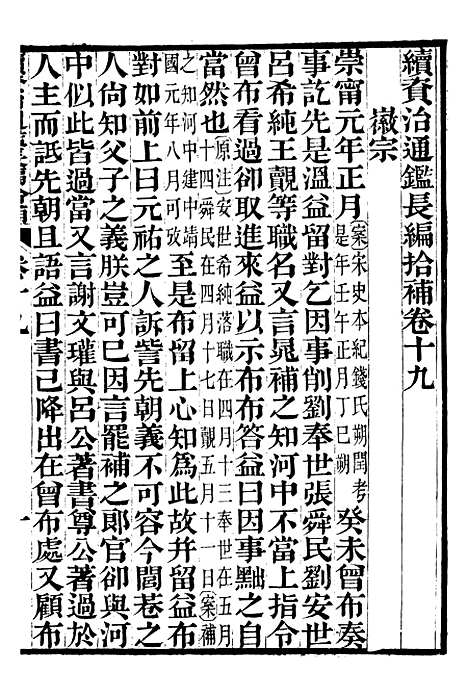 續資治通鑑長編拾補卷十九
徽宗
崇甯元年正月案宋史本紀錢氏朔閏考是年壬午正月丁巳朔癸未曾布奏
事訖先是溫益留對乞因事削劉奉世張舜民劉安世
呂希純王覿等職名又言晁補之知河中不當上指令
曾布看過卻取進來益以示布布答益曰因事黜之自
當然也原注安世希純落職在四月十三奉世在五月十四舜民在四月十七日覿五月十一日案補
之知河中建中靖國元年八月可攷至是布留上心知爲此故并留益布
對如前上曰元祐之人訴訾先朝義不可容今閭巷之
人尙知父子之義朕豈可已因言罷補之郞官卻與河
中似此皆過當又言謝文瓘與呂公著書尊公著過於
人主而詆先朝且語益曰書已降出在曾布處又顧布